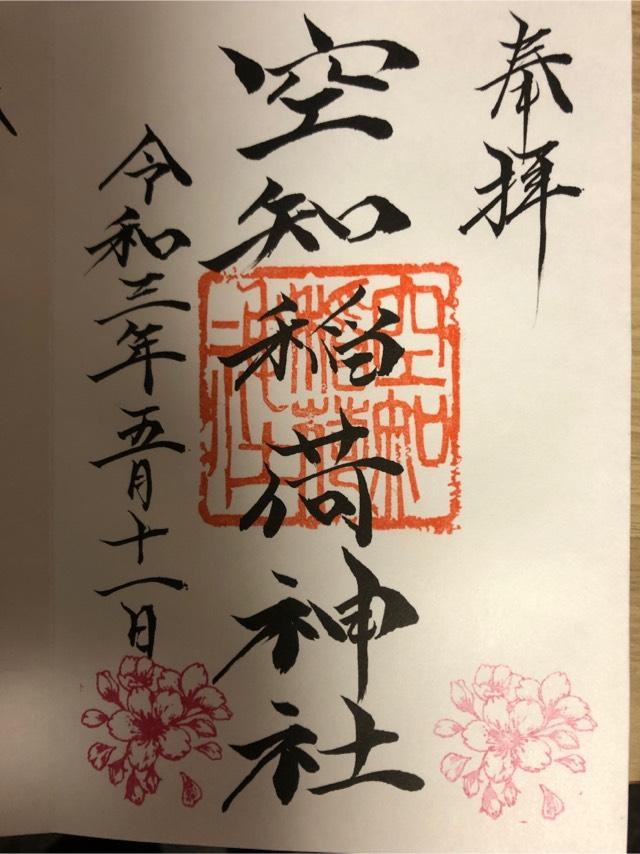 奉拝
空知稲荷神社
空知
稲荷
神社
令和三年五月十一日